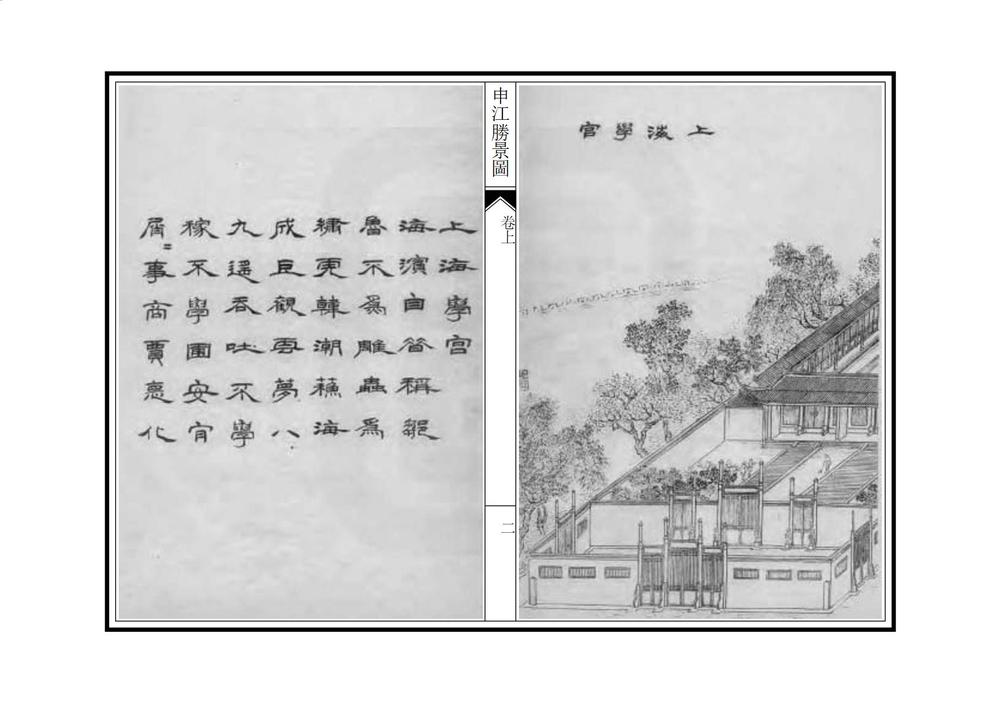 上海學宮
申江勝景圖
卷上
二
上海學宮
海濱自昔稱鄒
魯不爲雕蟲爲
繡更韓潮蘇海
成巨觀雲夢八
九遥吞吐不學
稼不學圃安肎
屑〻事商賈悳化